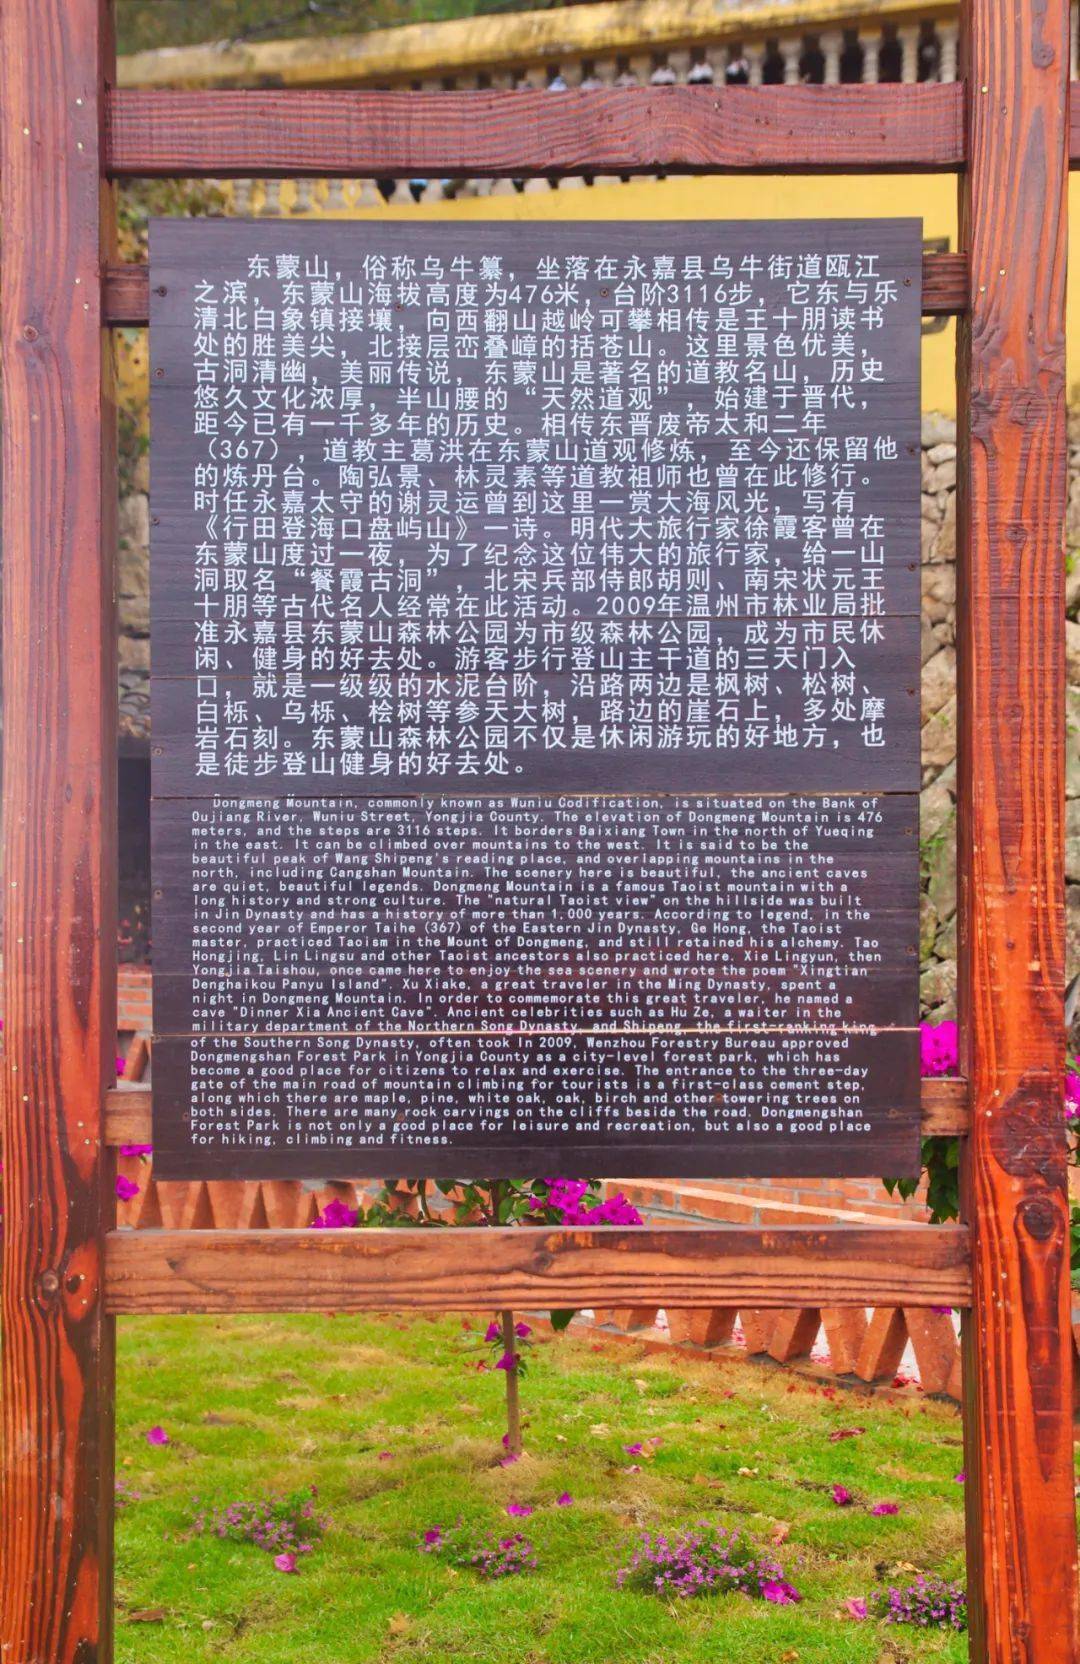 东蒙山，俗称乌牛纂，坐落在永嘉县乌牛街道瓯江
之滨，东蒙山海拔高度为476米，台阶3116步，它东与乐
清北白象镇接壤，向西翻山越岭可攀相传是王十朋读书
处的胜美尖，北接层峦叠嶂的括苍山。这里景色优美，
古洞清幽，美丽传说，东蒙山是著名的道教名山，历史
悠久文化浓厚，半山腰的“天然道观”，始建于晋代，
距今已有一千多年的历史。相传东晋废帝太和二年
（367），道教主葛洪在东蒙山道观修炼，至今还保留他
的炼丹台。陶弘景、林灵素等道教祖师也曾在此修行。
时任永嘉太守的谢灵运曾到这里一赏大海风光，写有
《行田登海口盘屿山》一诗。明代大旅行家徐霞客曾在
东蒙山度过一夜，为了纪念这位伟大的旅行家，给一山
洞取名“餐霞古洞”，北宋兵部侍郎胡则、南宋状元王
十朋等古代名人经常在此活动。2009年温州市林业局批
准永嘉县东蒙山森林公园为市级森林公园，成为市民休
闲、健身的好去处。游客步行登山主干道的三天门入
口，就是一级级的水泥台阶，沿路两边是枫树、松树、
白栎、乌栎、桧树等参天大树，路边的崖石上，多处摩
岩石刻。东蒙山森林公园不仅是休闲游玩的好地方，也
是徒步登山健身的好去处。
Dongmeng Mountain, commonly known as Wuniu Codification, is situated on the Bank of
Oujiang River, Wuniu Street, Yongjia County. The elevation of Dongmeng Mountain is 476
meters, and the steps are 3116 steps. It borders Baixiang Town in the north of Yueqing
in the east. It can be climbed over mountains to the west. It is said to be the
beautiful peak of Wang Shipeng's reading place, and overlapping mountains in the
north, including Cangshan Mountain. The scenery here is beautiful, the ancient caves
are quiet, beautiful legends. Dongmeng Mountain is a famous Taoist mountain with a
long history and strong culture. The "natural Taoist view" on the hillside was built
in Jin Dynasty and has a history of more than 1,000 years. According to legend, in the
second year of Emperor Taihe (367) of the Eastern Jin Dynasty, Ge Hong, the Taoist
master, practiced Taoism in the Mount of Dongmeng, and still retained his alchemy. Tao
Hongjing, Lin Lingsu and other Taoist ancestors also practiced here. Xie Lingyun, then
Yongjia Taishou, once came here to enjoy the sea scenery and wrote the poem "Xingtian
Denghaikou Panyu Island". Xu Xiake, a great traveler in the Ming Dynasty, spent a
night in Dongmeng Mountain. In order to commemorate this great traveler, he named a
cave "Dinner Xia Ancient Cave". Ancient celebrities such as Hu Ze, a waiter in the
military department of the Northern Song Dynasty, and Shipeng, the first-ranking king
of the Southern Song Dynasty, often took In 2009, Wenzhou Forestry Bureau approved
Dongmengshan Forest Park in Yongjia County as a city-level forest park, which has
become a good place for citizens to relax and exercise. The entrance to the three-day
gate of the main road of mountain climbing for tourists is a first-class cement step,
along which there are maple, pine, white oak, oak, birch and other towering trees on
both sides. There are many rock carvings on the cliffs beside the road. Dongmengshan
Forest Park is not only a good place for leisure and recreation, but also a good place
for hiking, climbing and fitness.